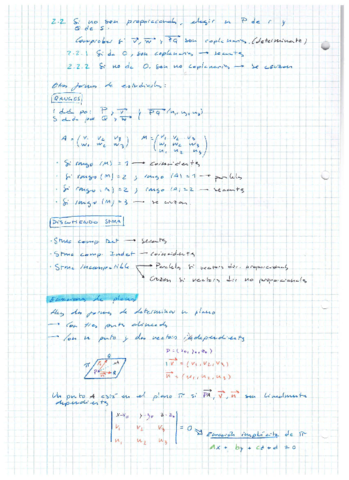 2.2. Si no son proporcionales, elegir un P de r y
Q de s.
Comprobar si v, w, PQ son coplanarios (determinante)
2.2.1 Si da 0, son coplanarios → secantes
2.2.2 Si no da 0, son no coplanarios → se cruzan
Otra forma de estudiarlo:
RANGOS
r dada por: P, v
s dada por Q, w
PQ (u₁, u₂, u₃)
A = (v₁ v₂ v₃ / w₁ w₂ w₃) M = (v₁ v₂ v₃ / w₁ w₂ w₃ / u₁ u₂ u₃)
· Si rango (M) = 1 → coincidentes
· Si rango (M) = 2 y rango (A) = 1 → paralelas
· Si rango (M) = 2 y rango (A) = 2 → secantes
· Si rango (M) = 3 → se cruzan
DISCUTIENDO STMA
· Stma comp Det → secantes
· Stma comp Indet → coincidentes
· Stma incompatible → Paralelas si vectores dir. proporcionales
→ Cruzan si vectores dir no proporcionales
Ecuaciones de planos
Hay dos formas de determinar un plano
→ Con tres puntos alineados
→ Con un punto y dos vectores independientes
π
P
v = (v₁, v₂, v₃)
w = (w₁, w₂, w₃)
Un punto A está en el plano π si PA, v, w son linealmente
dependientes
| x-x₀ y-y₀ z-z₀ |
| v₁ v₂ v₃ | = 0 → Ecuación implícita de π
| w₁ w₂ w₃ |
Ax + By + Cz + D = 0